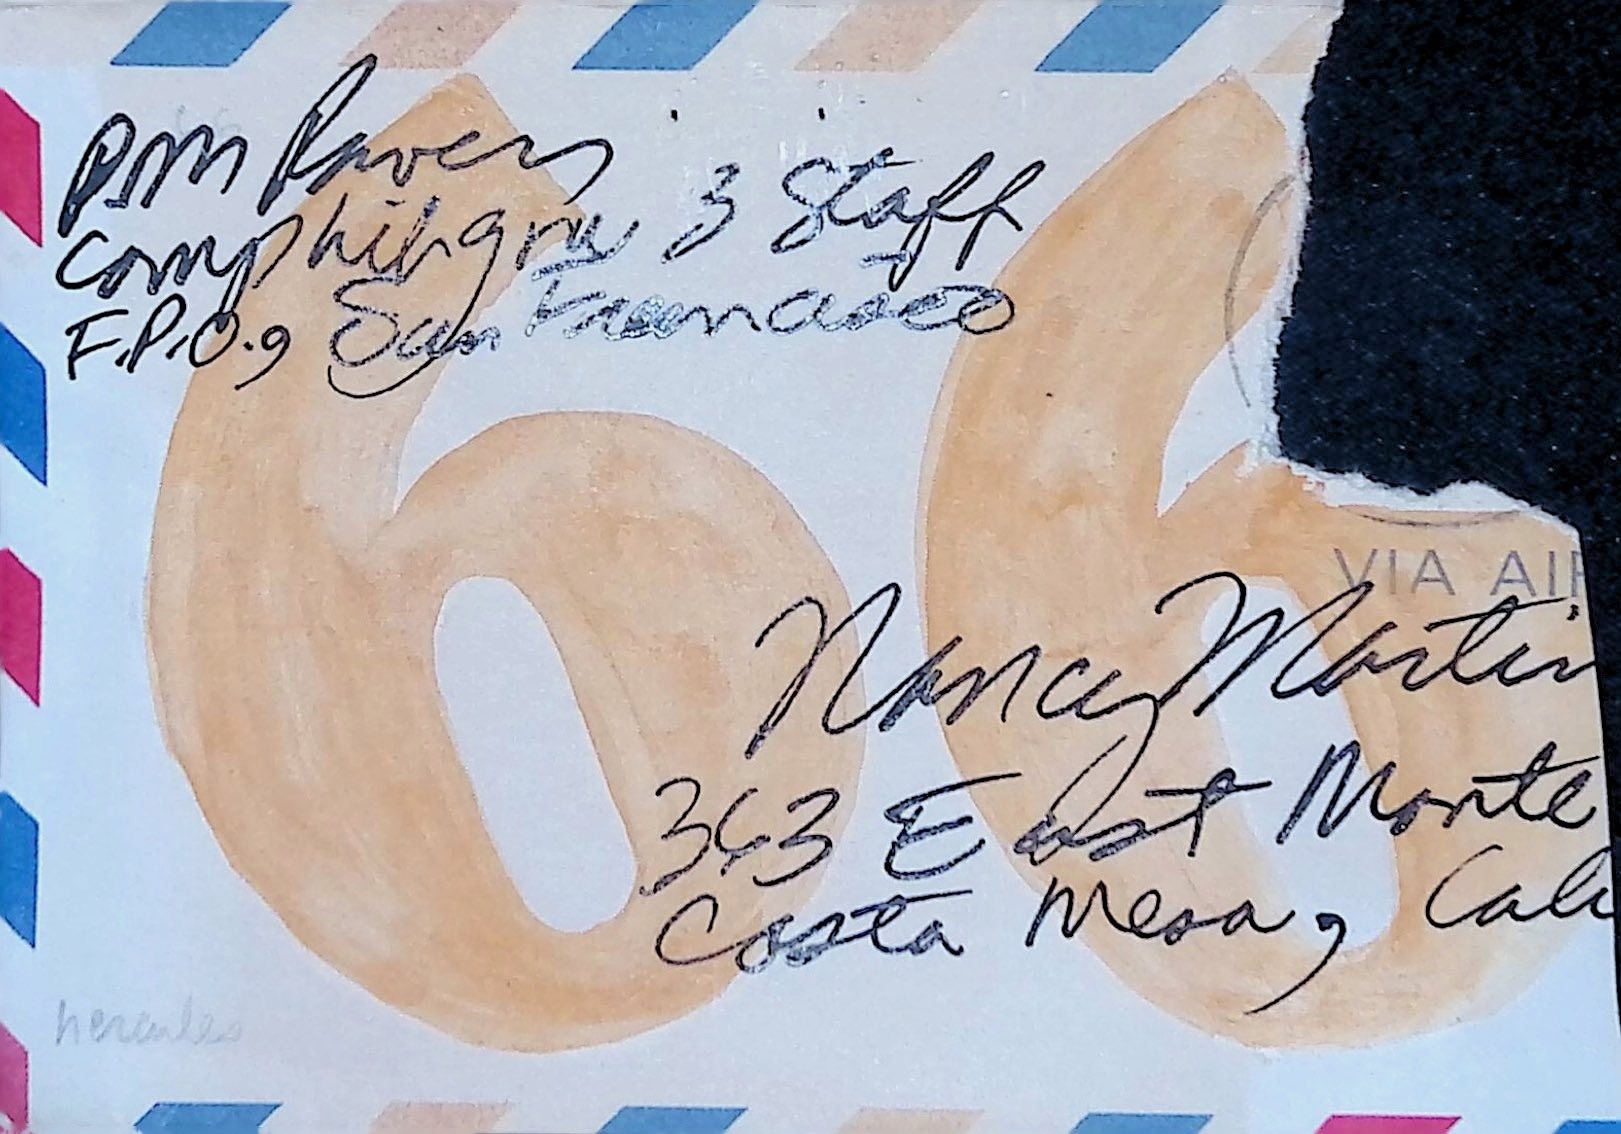 Comphibgru 3 Staff
F.P.O., San Francisco
66
VIA AIR
Nancy Martin
363 East Monte
Costa Mesa, Cali
hercules